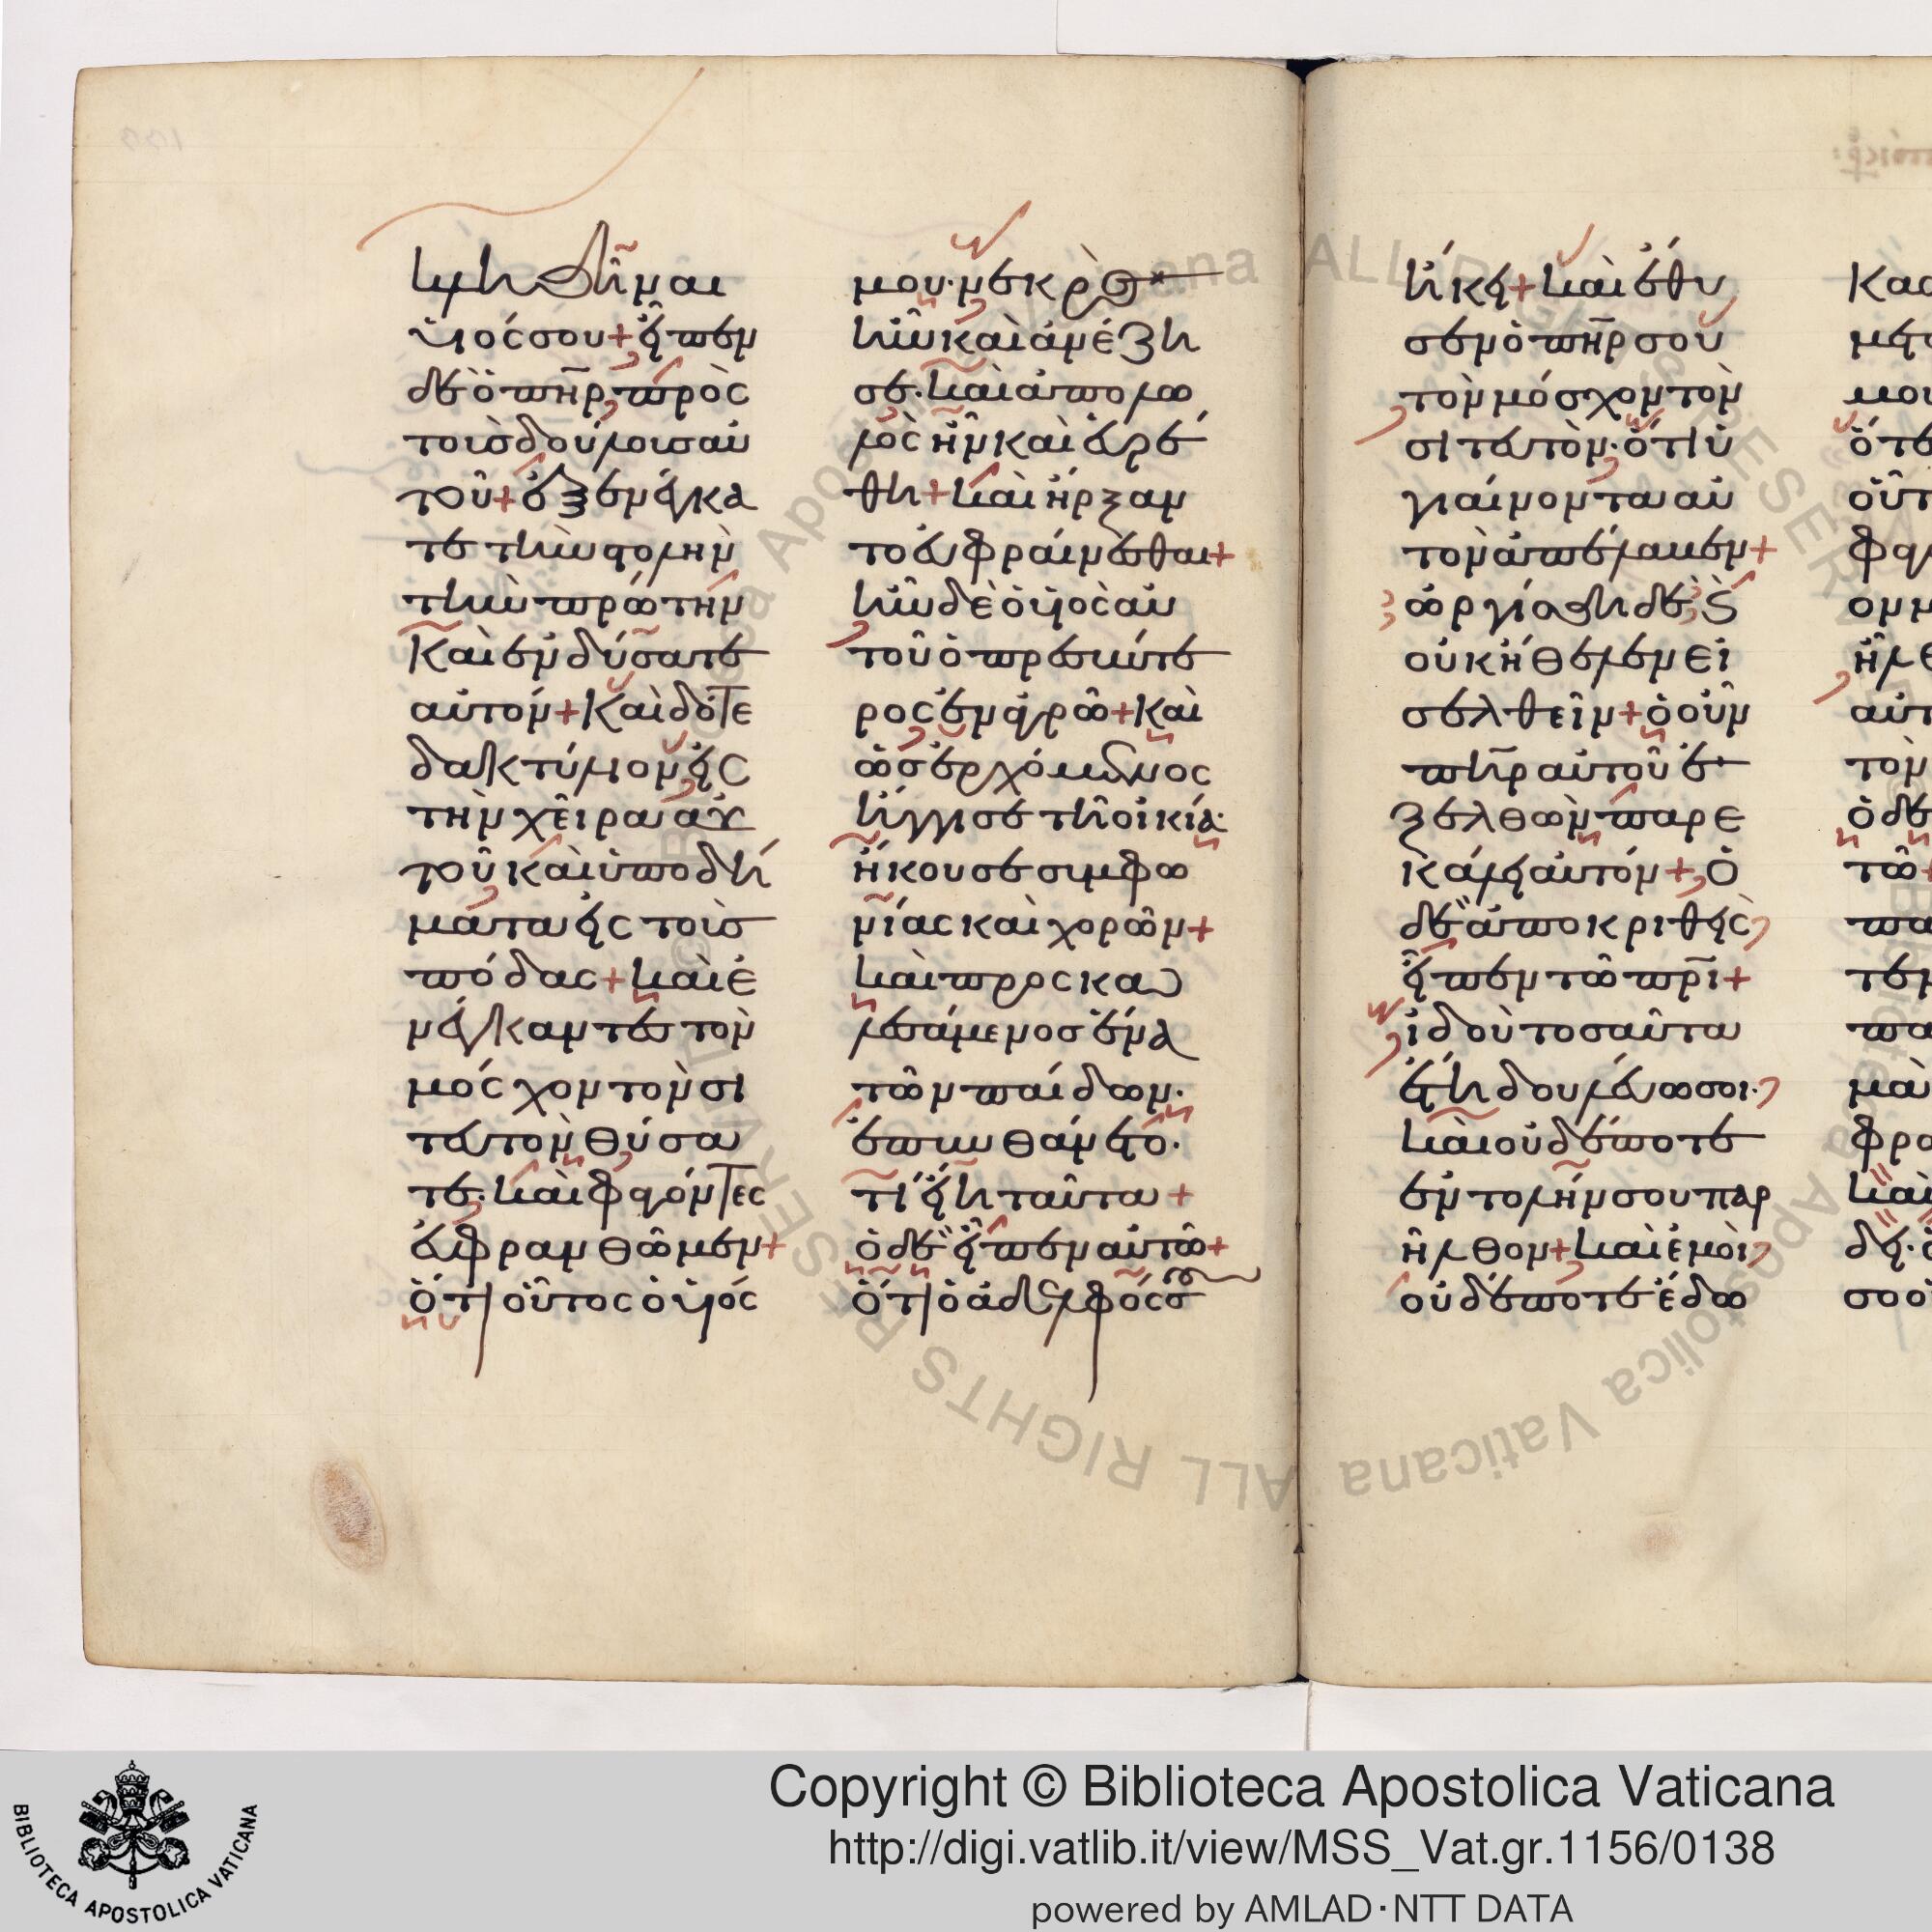 κληθῆναι
υἱός σου + εἶπεν
δὲ ὁ πη̅ρ πρὸς
τοὺς δούλους αὐ
τοῦ + ἐξενέγκα
τε τὴν στολὴν
τὴν πρώτην
καὶ ἐνδύσατε
αὐτόν + καὶ δότε
δακτύλιον εἰς
τὴν χεῖρα αὐ
τοῦ καὶ ὑποδή
ματα εἰς τοὺς
πόδας + καὶ ἐ
νέγκαντες τὸν
μόσχον τὸν σι
τευτὸν θύσα
τε· καὶ φαγόντες
εὐφρανθῶμεν +
ὅτι οὗτος ὁ υἱός
μου· νεκρὸς
ἦν καὶ ἀνέζη
σε· καὶ ἀπολω
λὸς ἦν καὶ εὑρέ
θη + καὶ ἤρξαν
το εὐφραίνεσθαι +
ἦν δὲ ὁ υἱὸς αὐ
τοῦ ὁ πρεσβύτε
ρος ἐν ἀγρῶ + καὶ
ὡς ἐρχόμενος
ἤγγισε τῆ οἰκία·
ἤκουσε συμφω
νίας καὶ χορῶν +
καὶ προσκα
λεσάμενος ἕνα
τῶν παίδων·
ἐπυνθάνετο·
τί εἴη ταῦτα +
ὁ δὲ εἶπεν αὐτῶ +
ὅτι ὁ ἀδελφός σου
ἥκει + καὶ ἔθυ
σεν ὁ πη̅ρ σου
τὸν μόσχον τὸν
σιτευτὸν· ὅτι ὑ
γιαίνοντα αὐ
τὸν ἀπέλαβεν +
ὠργίσθη δὲ καὶ
οὐκ ἤθελεν εἰ
σελθεῖν + ὁ οὖν
πη̅ρ αὐτοῦ ἐ
ξελθὼν παρε
κάλει αὐτόν + ὁ
δὲ ἀποκριθεὶς
εἶπεν τῶ πρ̅ι +
ἰδοὺ τοσαῦτα
ἔτη δουλεύω σοι·
καὶ οὐδέποτε
ἐντολήν σου παρ
ῆλθον + καὶ ἐμοὶ
οὐδέποτε ἔδω
Copyright © Biblioteca Apostolica Vaticana
http://digi.vatlib.it/view/MSS_Vat.gr.1156/0138
powered by AMLAD·NTT DATA
BIBLIOTECA APOSTOLICA VATICANA